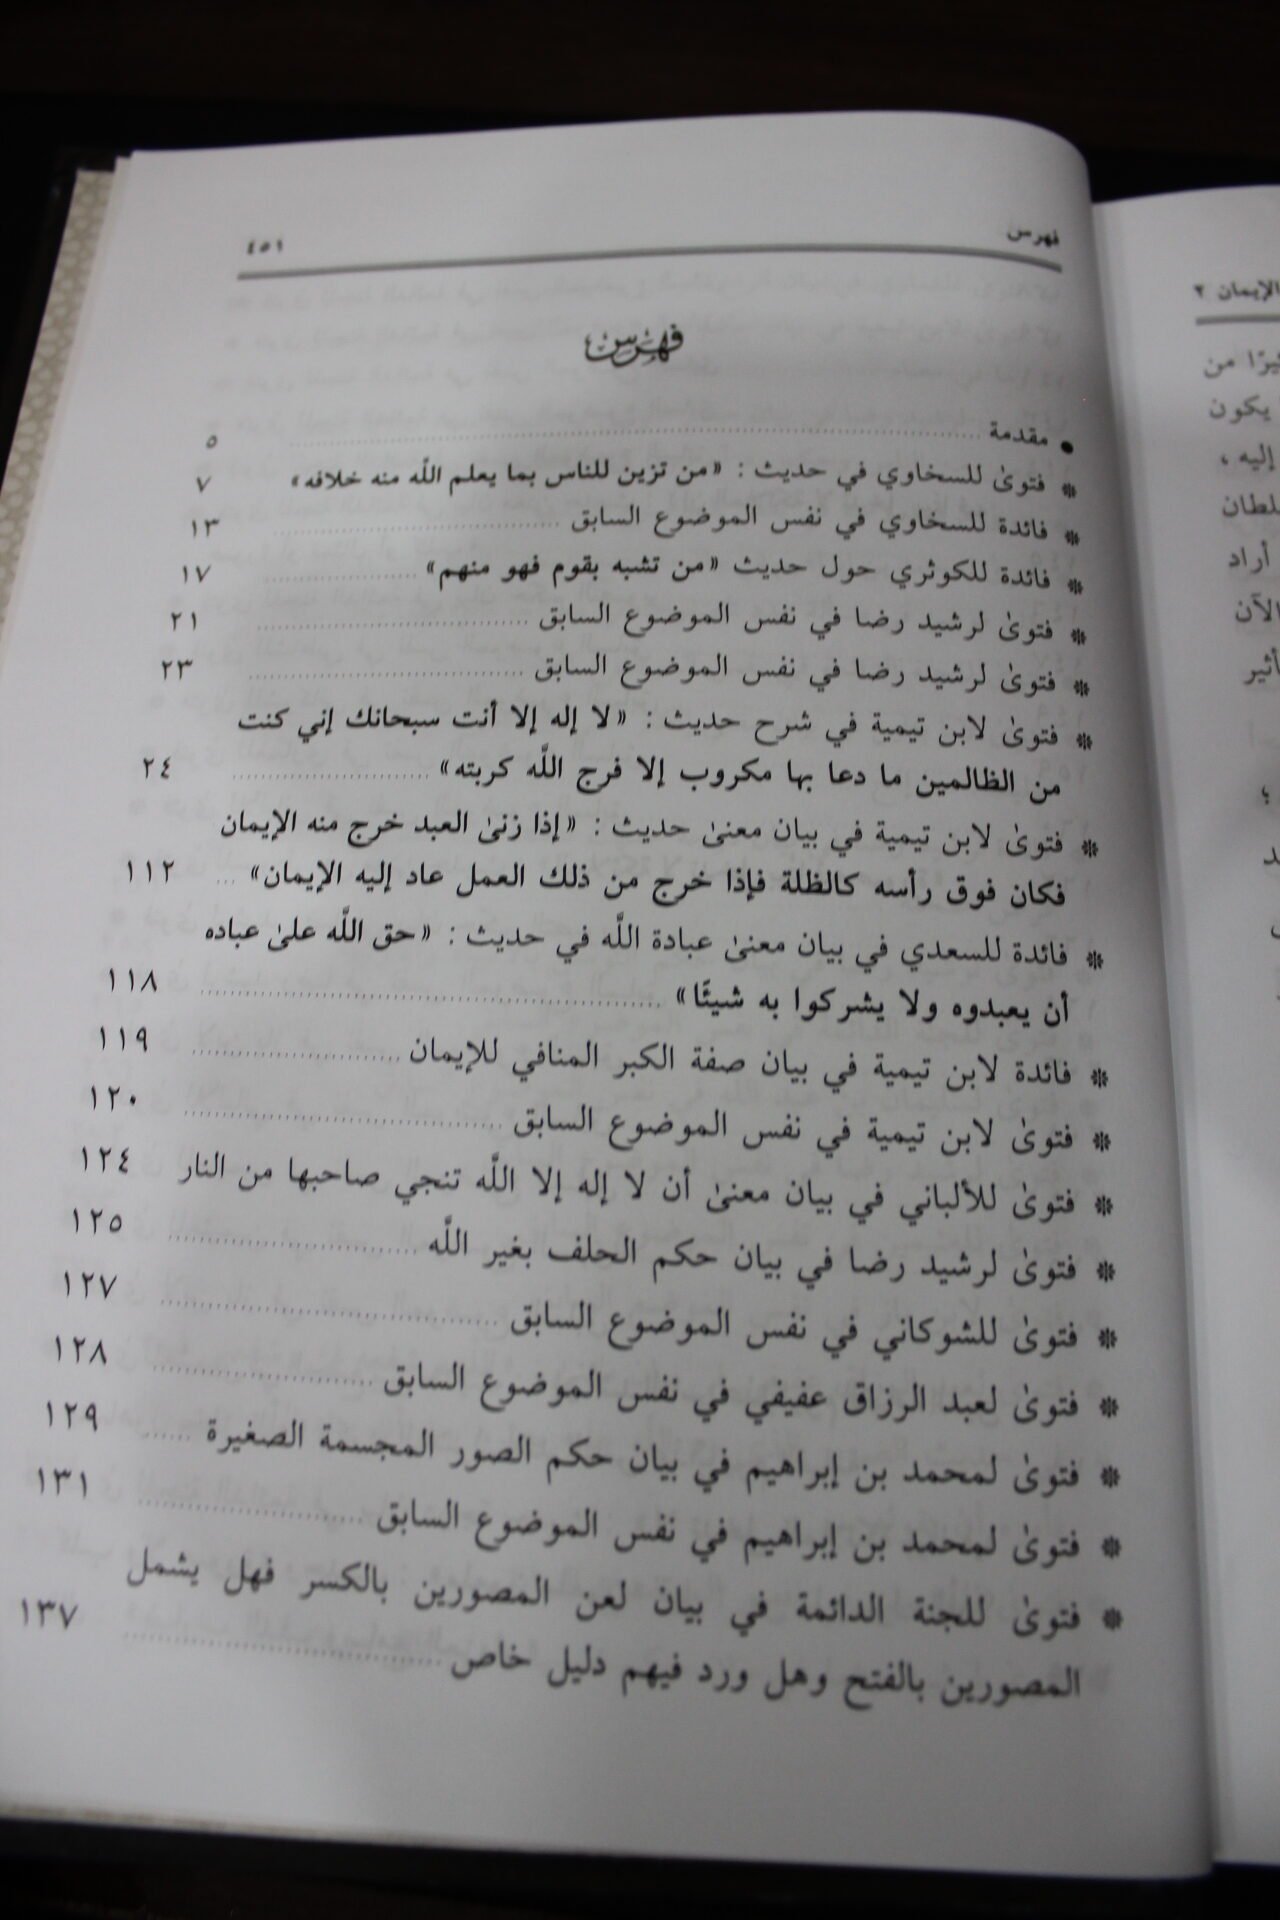 فهرس ٤٥١
فهرس
• مقدمة ٥
* فتوىٰ للسخاوي في حديث : «من تزين للناس بما يعلم اللَّه منه خلافه» ٧
* فائدة للسخاوي في نفس الموضوع السابق ١٣
* فائدة للكوثري حول حديث «من تشبه بقوم فهو منهم» ١٧
* فتوىٰ لرشيد رضا في نفس الموضوع السابق ٢١
* فتوىٰ لرشيد رضا في نفس الموضوع السابق ٢٣
* فتوىٰ لابن تيمية في شرح حديث : «لا إله إلا أنت سبحانك إني كنت
من الظالمين ما دعا بها مكروب إلا فرج اللَّه كربته» ٢٤
* فتوىٰ لابن تيمية في بيان معنىٰ حديث : «إذا زنىٰ العبد خرج منه الإيمان
فكان فوق رأسه كالظلة فإذا خرج من ذلك العمل عاد إليه الإيمان» ١١٢
* فائدة للسعدي في بيان معنىٰ عبادة اللَّه في حديث : «حق اللَّه علىٰ عباده
أن يعبدوه ولا يشركوا به شيئًا» ١١٨
* فائدة لابن تيمية في بيان صفة الكبر المنافي للإيمان ١١٩
* فتوىٰ لابن تيمية في نفس الموضوع السابق ١٢٠
* فتوىٰ للألباني في بيان معنىٰ أن لا إله إلا اللَّه تنجي صاحبها من النار ١٢٤
* فتوىٰ لرشيد رضا في بيان حكم الحلف بغير اللَّه ١٢٥
* فتوىٰ للشوكاني في نفس الموضوع السابق ١٢٧
* فتوىٰ لعبد الرزاق عفيفي في نفس الموضوع السابق ١٢٨
* فتوىٰ لمحمد بن إبراهيم في بيان حكم الصور المجسمة الصغيرة ١٢٩
* فتوىٰ لمحمد بن إبراهيم في نفس الموضوع السابق ١٣١
* فتوىٰ للجنة الدائمة في بيان لعن المصورين بالكسر فهل يشمل
المصورين بالفتح وهل ورد فيهم دليل خاص ١٣٧
الإيمان ٢
من
يكون
إليه ،
أراد
الآن